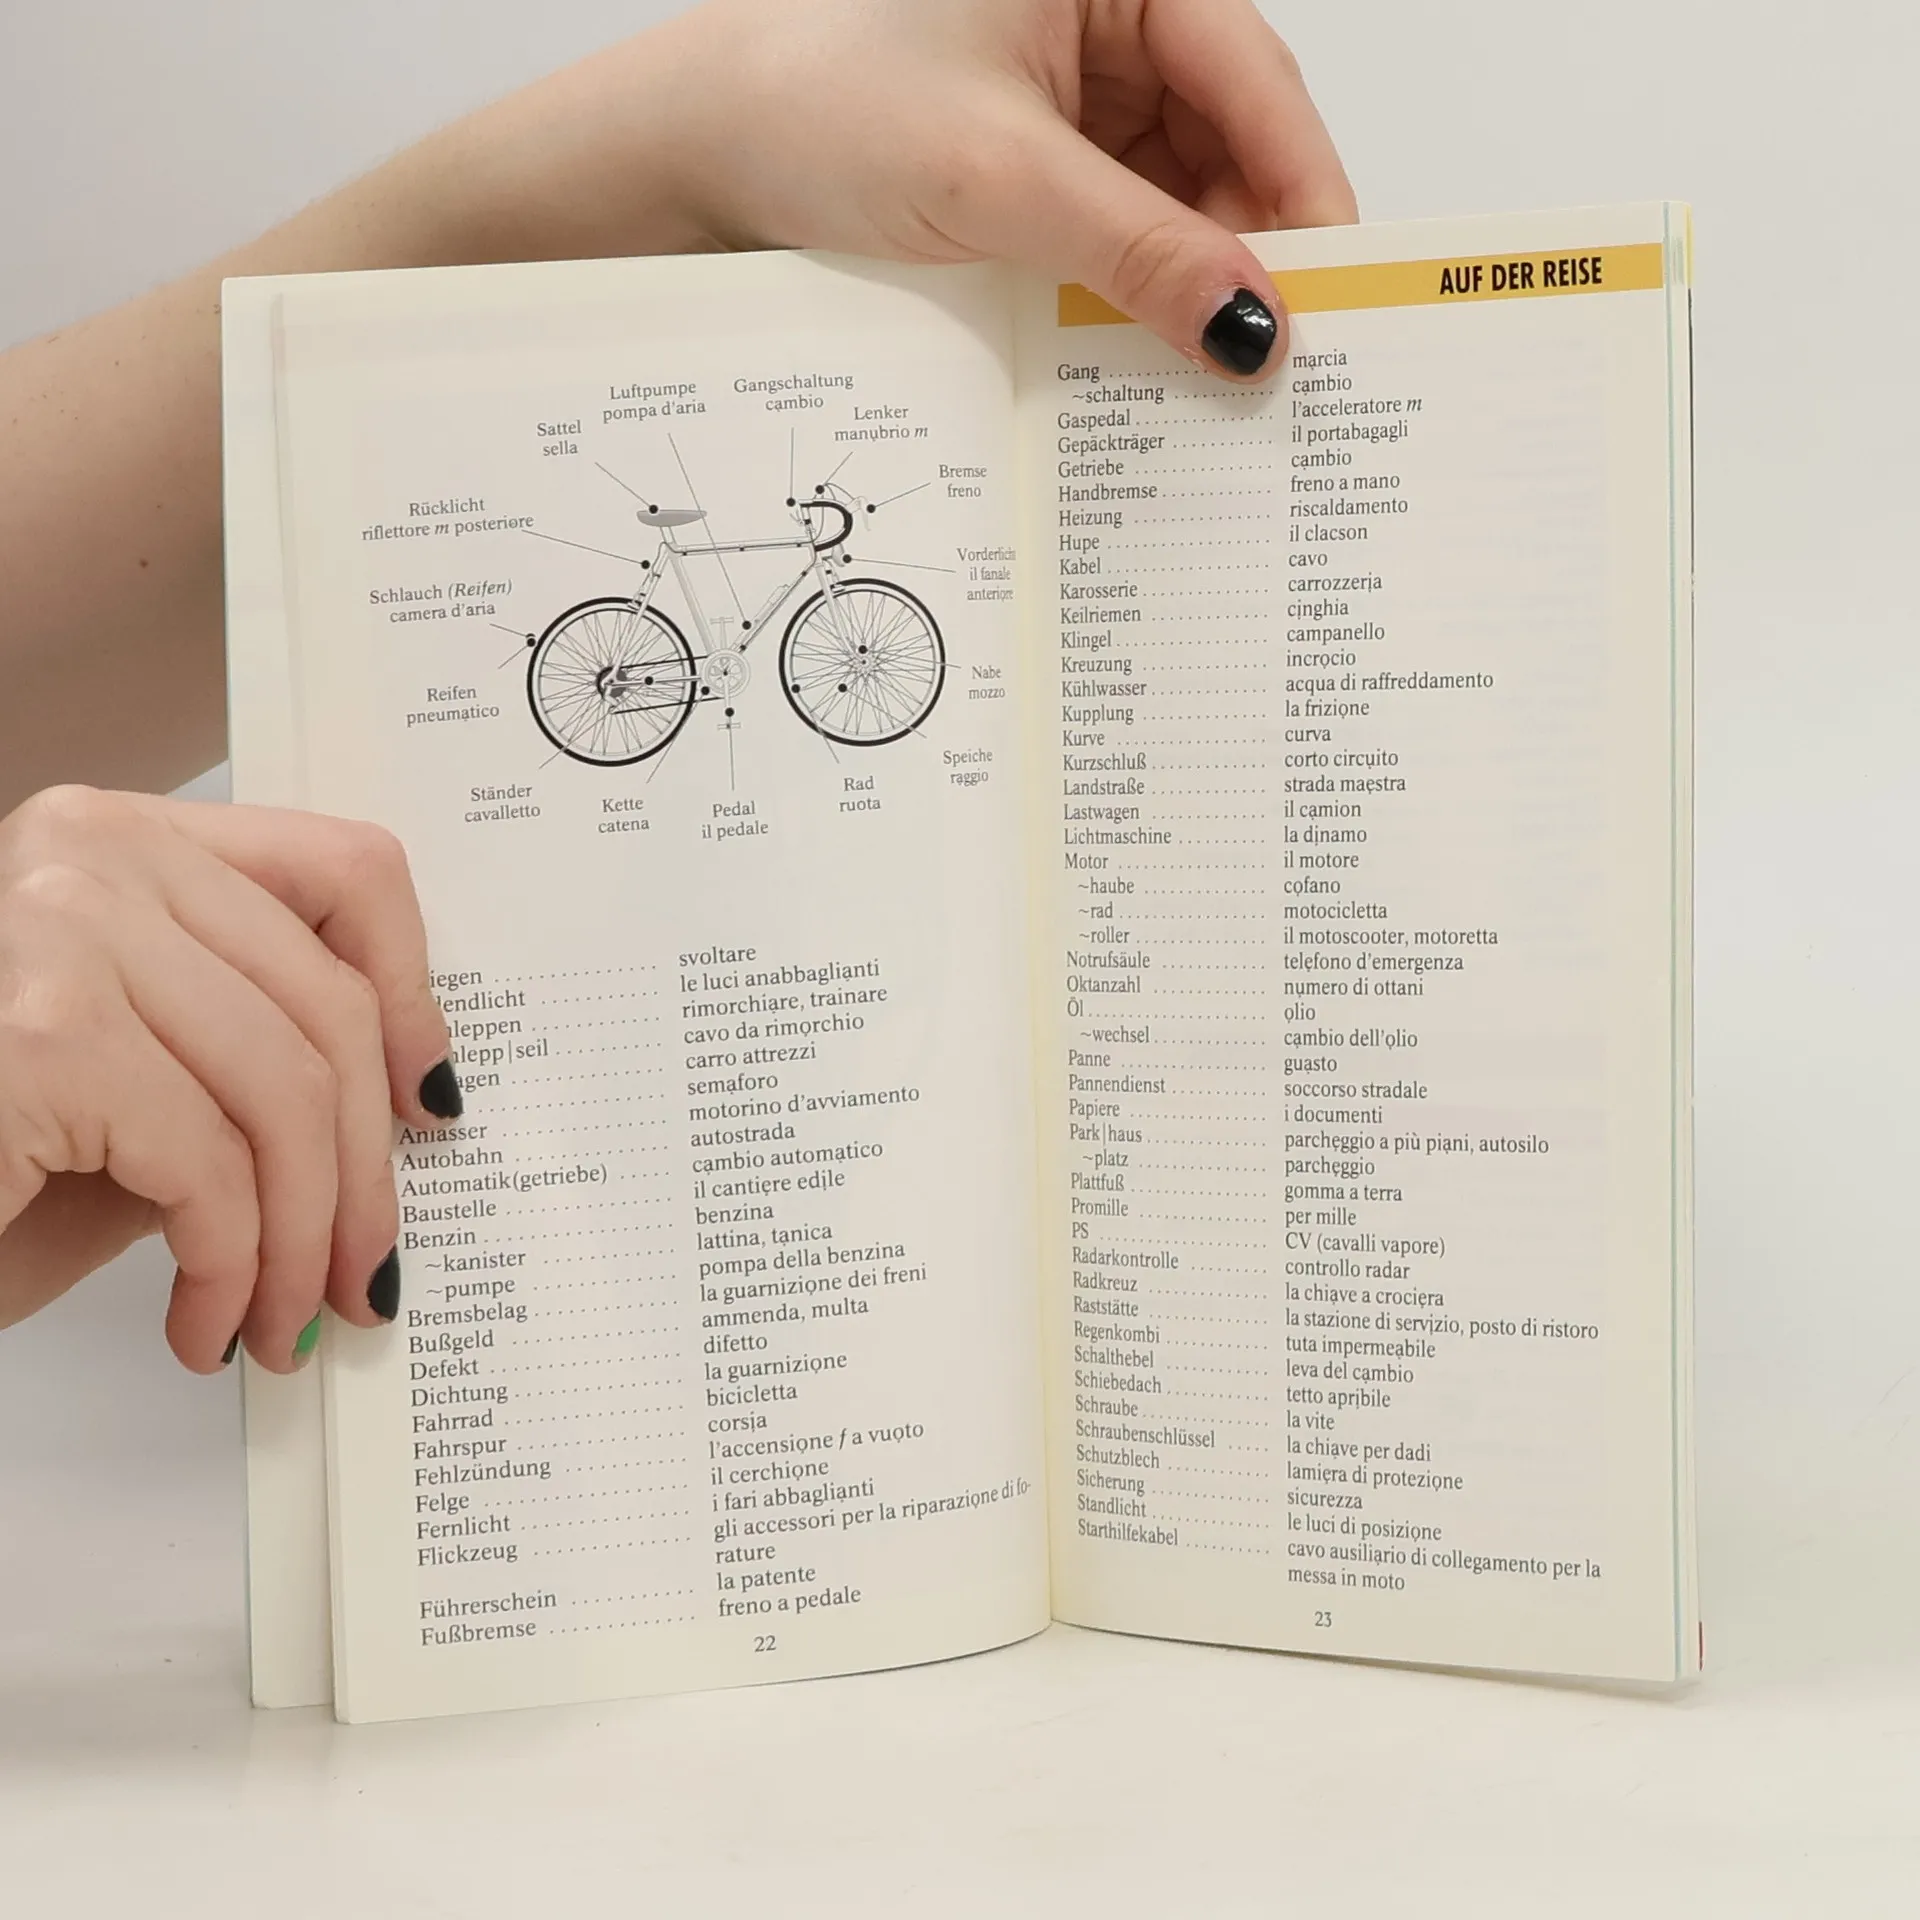 Luftpumpe
pompa d'aria
Gangschaltung
cambio
Sattel
sella
Lenker
manubrio m
Bremse
freno
Rücklicht
riflettore m posteriore
Vorderlich
il fanale
anteriore
Schlauch (Reifen)
camera d'aria
Reifen
pneumatico
Nabe
mozzo
Speiche
raggio
Ständer
cavalletto
Kette
catena
Pedal
il pedale
Rad
ruota
iegen svoltare
lendlicht le luci anabbaglianti
leppen rimorchiare, trainare
lepp|seil cavo da rimorchio
agen carro attrezzi
semaforo
Anlasser motorino d'avviamento
Autobahn autostrada
Automatik(getriebe) cambio automatico
Baustelle il cantiere edile
Benzin benzina
~kanister lattina, tanica
~pumpe pompa della benzina
Bremsbelag la guarnizione dei freni
Bußgeld ammenda, multa
Defekt difetto
Dichtung la guarnizione
Fahrrad bicicletta
Fahrspur corsia
Fehlzündung l'accensione f a vuoto
Felge il cerchione
Fernlicht i fari abbaglianti
Flickzeug gli accessori per la riparazione di fo-
rature
Führerschein la patente
Fußbremse freno a pedale
22
AUF DER REISE
Gang marcia
~schaltung cambio
Gaspedal l'acceleratore m
Gepäckträger il portabagagli
Getriebe cambio
Handbremse freno a mano
Heizung riscaldamento
Hupe il clacson
Kabel cavo
Karosserie carrozzeria
Keilriemen cinghia
Klingel campanello
Kreuzung incrocio
Kühlwasser acqua di raffreddamento
Kupplung la frizione
Kurve curva
Kurzschluß corto circuito
Landstraße strada maestra
Lastwagen il camion
Lichtmaschine la dinamo
Motor il motore
~haube cofano
~rad motocicletta
~roller il motoscooter, motoretta
Notrufsäule telefono d'emergenza
Oktanzahl numero di ottani
Öl olio
~wechsel cambio dell'olio
Panne guasto
Pannendienst soccorso stradale
Papiere i documenti
Park|haus parcheggio a più piani, autosilo
~platz parcheggio
Plattfuß gomma a terra
Promille per mille
PS CV (cavalli vapore)
Radarkontrolle controllo radar
Radkreuz la chiave a crociera
Raststätte la stazione di servizio, posto di ristoro
Regenkombi tuta impermeabile
Schalthebel leva del cambio
Schiebedach tetto apribile
Schraube la vite
Schraubenschlüssel la chiave per dadi
Schutzblech lamiera di protezione
Sicherung sicurezza
Standlicht le luci di posizione
Starthilfekabel cavo ausiliario di collegamento per la
messa in moto
23